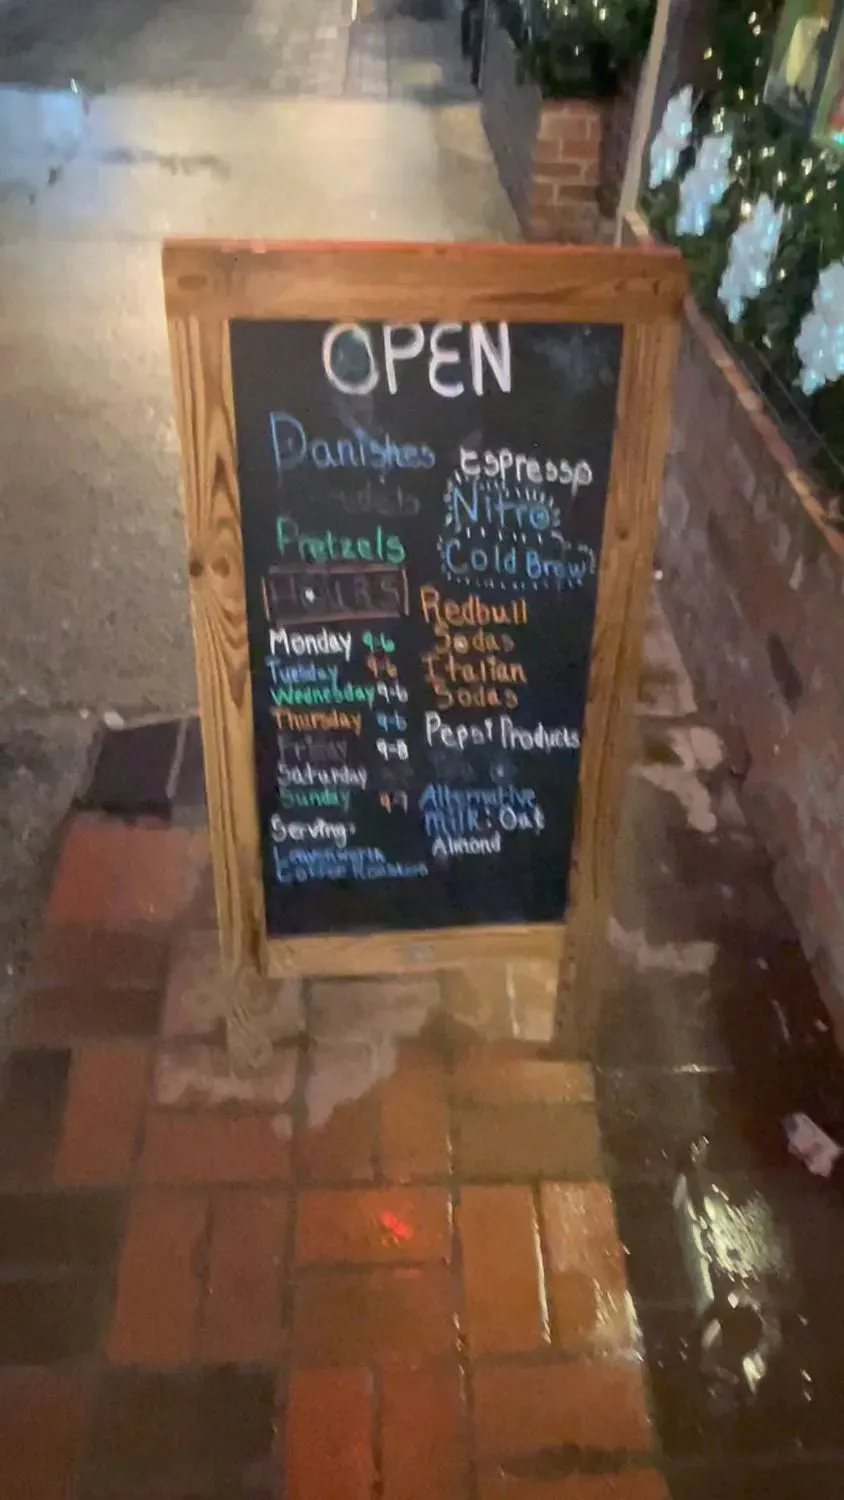 OPEN
Danishes
Pretzels
HOURS
Monday 9-6
Tuesday 9-6
Wednesday 9-6
Thursday 9-6
Friday 9-8
Saturday
Sunday 9-7
Serving:
Leavenworth
Coffee Roasters
Espresso
Nitro
Cold Brew
Redbull
Sodas
Italian
Sodas
Pepsi Products
Alternative
Milk: Oat
Almond